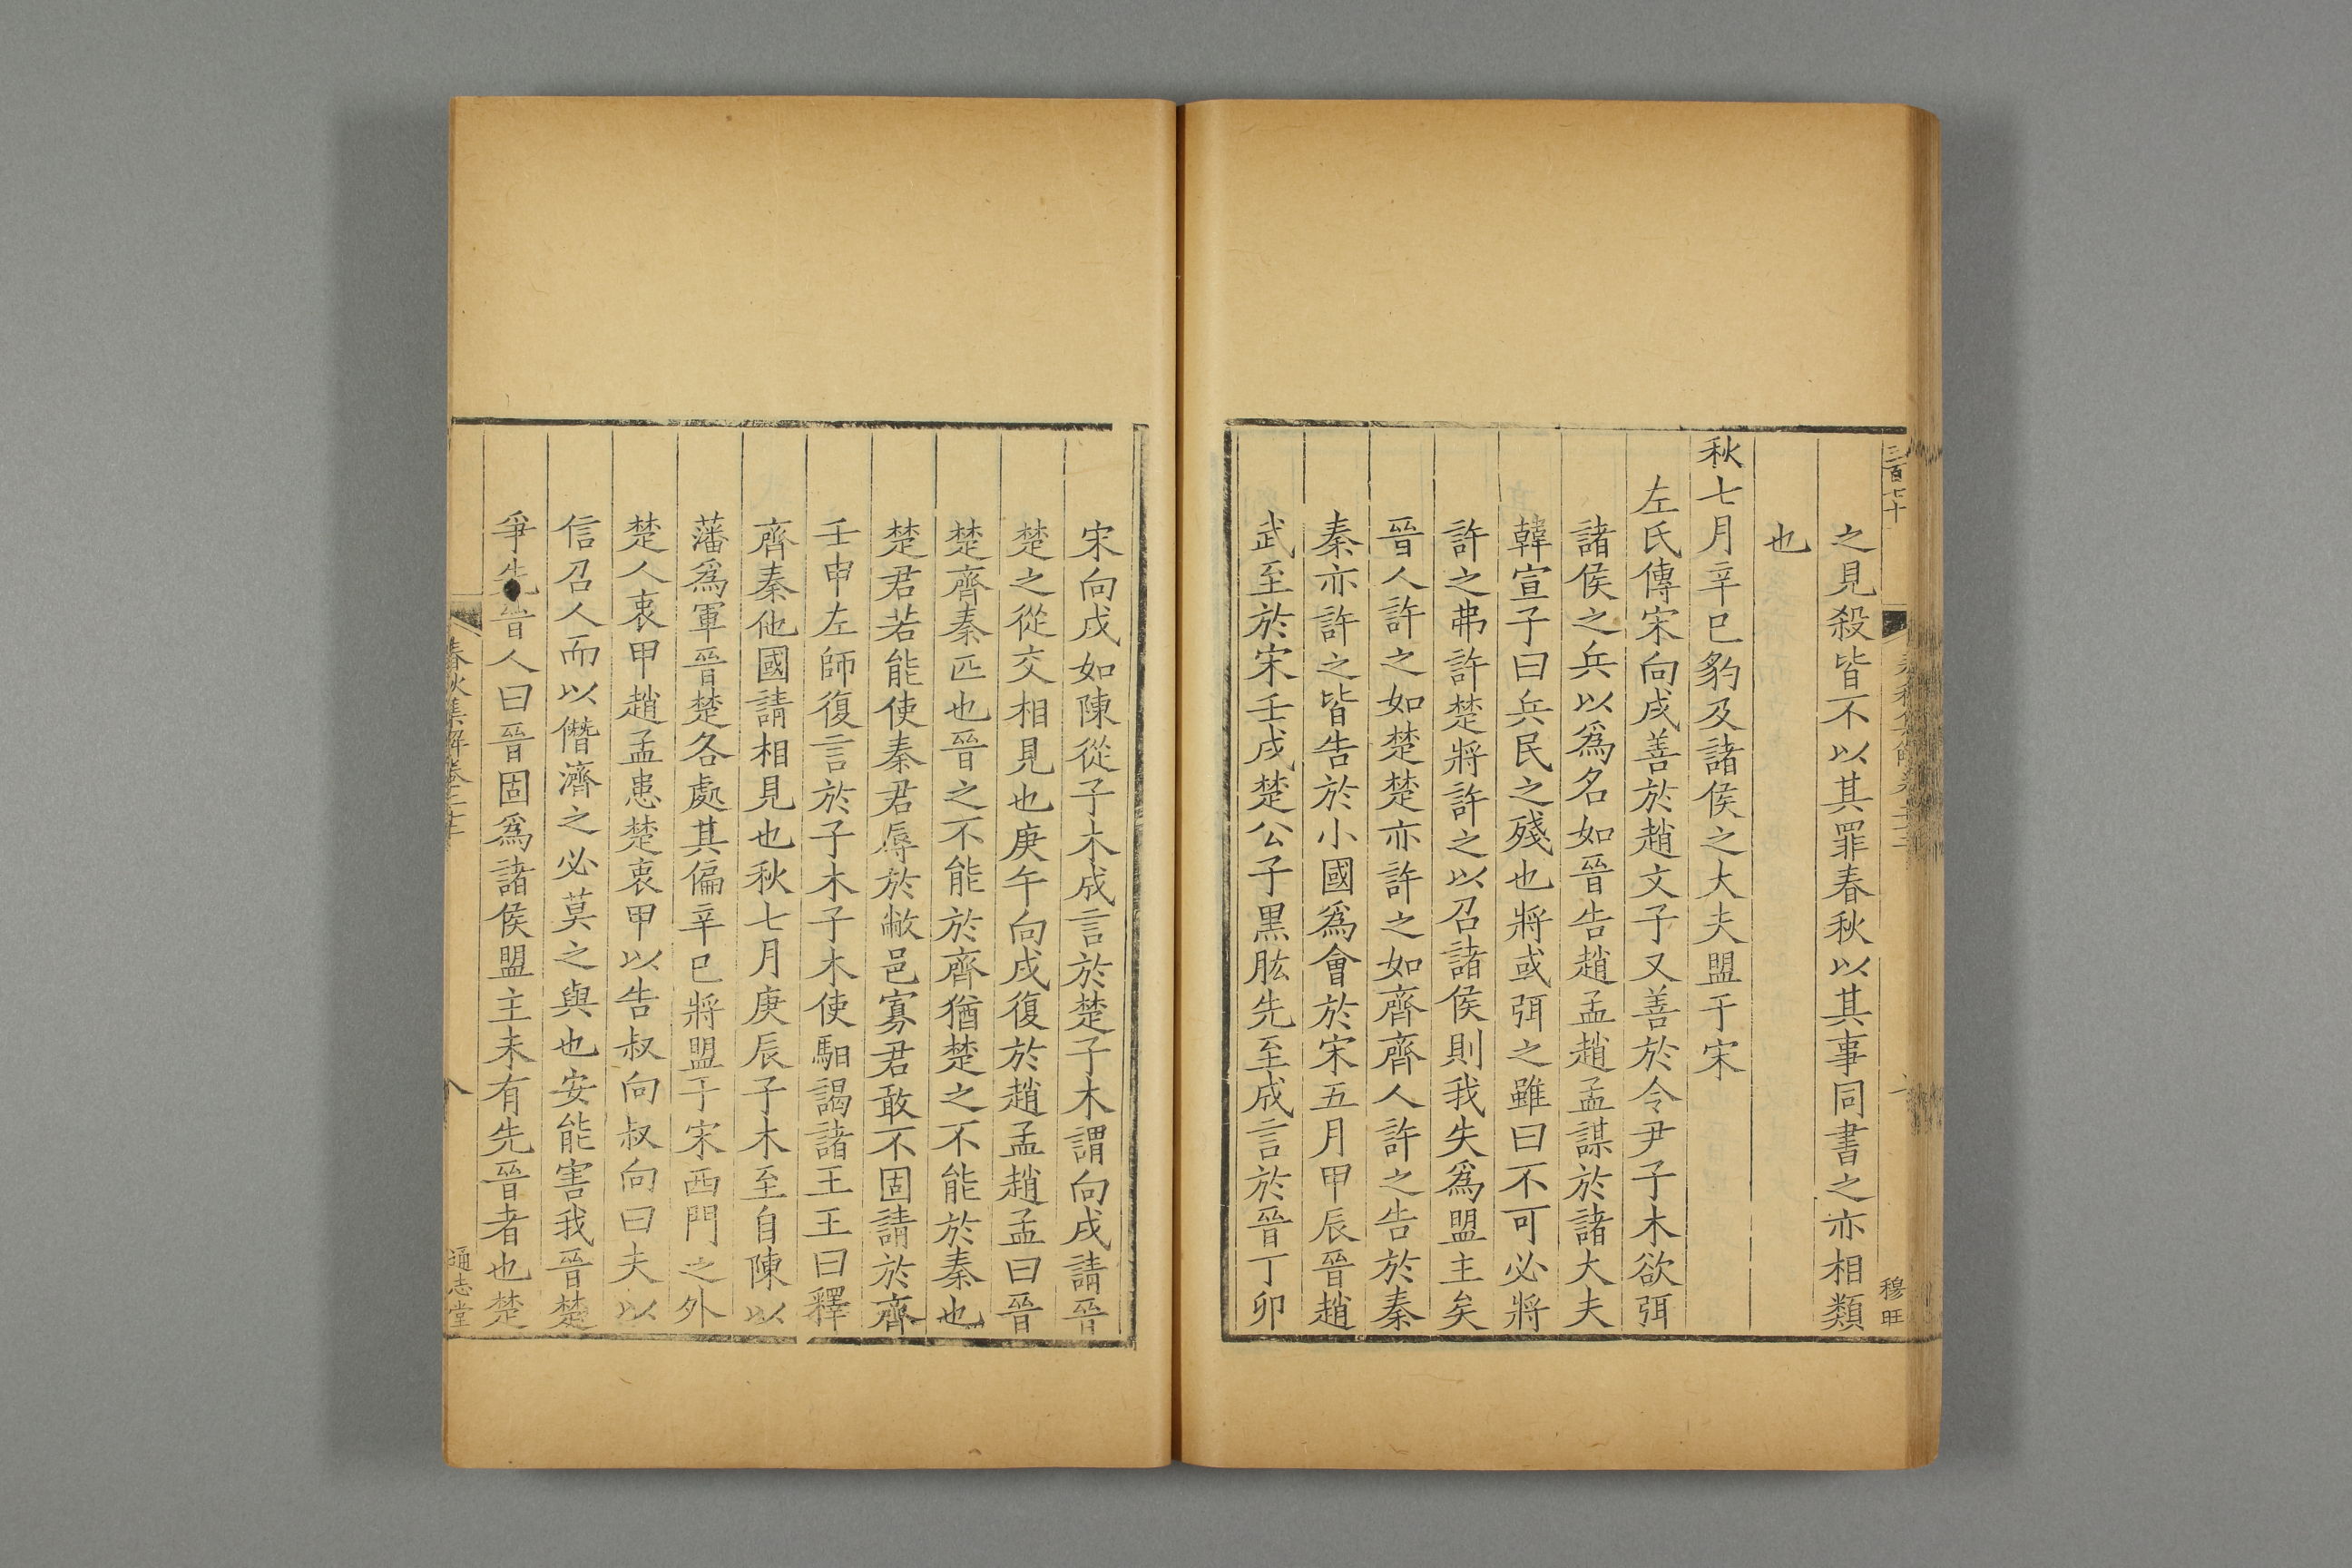 三百七十
穆旺
之見殺皆不以其罪春秋以其事同書之亦相類
也
秋七月辛巳豹及諸侯之大夫盟于宋
左氏傳宋向戌善於趙文子又善於令尹子木欲弭
諸侯之兵以爲名如晉告趙孟趙孟謀於諸大夫
韓宣子曰兵民之殘也將或弭之雖曰不可必將
許之弗許楚將許之以召諸侯則我失爲盟主矣
晉人許之如楚楚亦許之如齊齊人許之告於秦
秦亦許之皆告於小國爲會於宋五月甲辰晉趙
武至於宋壬戌楚公子黑肱先至成言於晉丁卯
宋向戌如陳從子木成言於楚子木謂向戌請晉
楚之從交相見也庚午向戌復於趙孟趙孟曰晉
楚齊秦匹也晉之不能於齊猶楚之不能於秦也
楚君若能使秦君辱於敝邑寡君敢不固請於齊
壬申左師復言於子木子木使馹謁諸王王曰釋
齊秦他國請相見也秋七月庚辰子木至自陳以
藩爲軍晉楚各處其偏辛巳將盟于宋西門之外
楚人衷甲趙孟患楚衷甲以告叔向叔向曰夫以
信召人而以僭濟之必莫之與也安能害我晉楚
爭先晉人曰晉固爲諸侯盟主未有先晉者也楚
春秋集解卷二十
八
通志堂